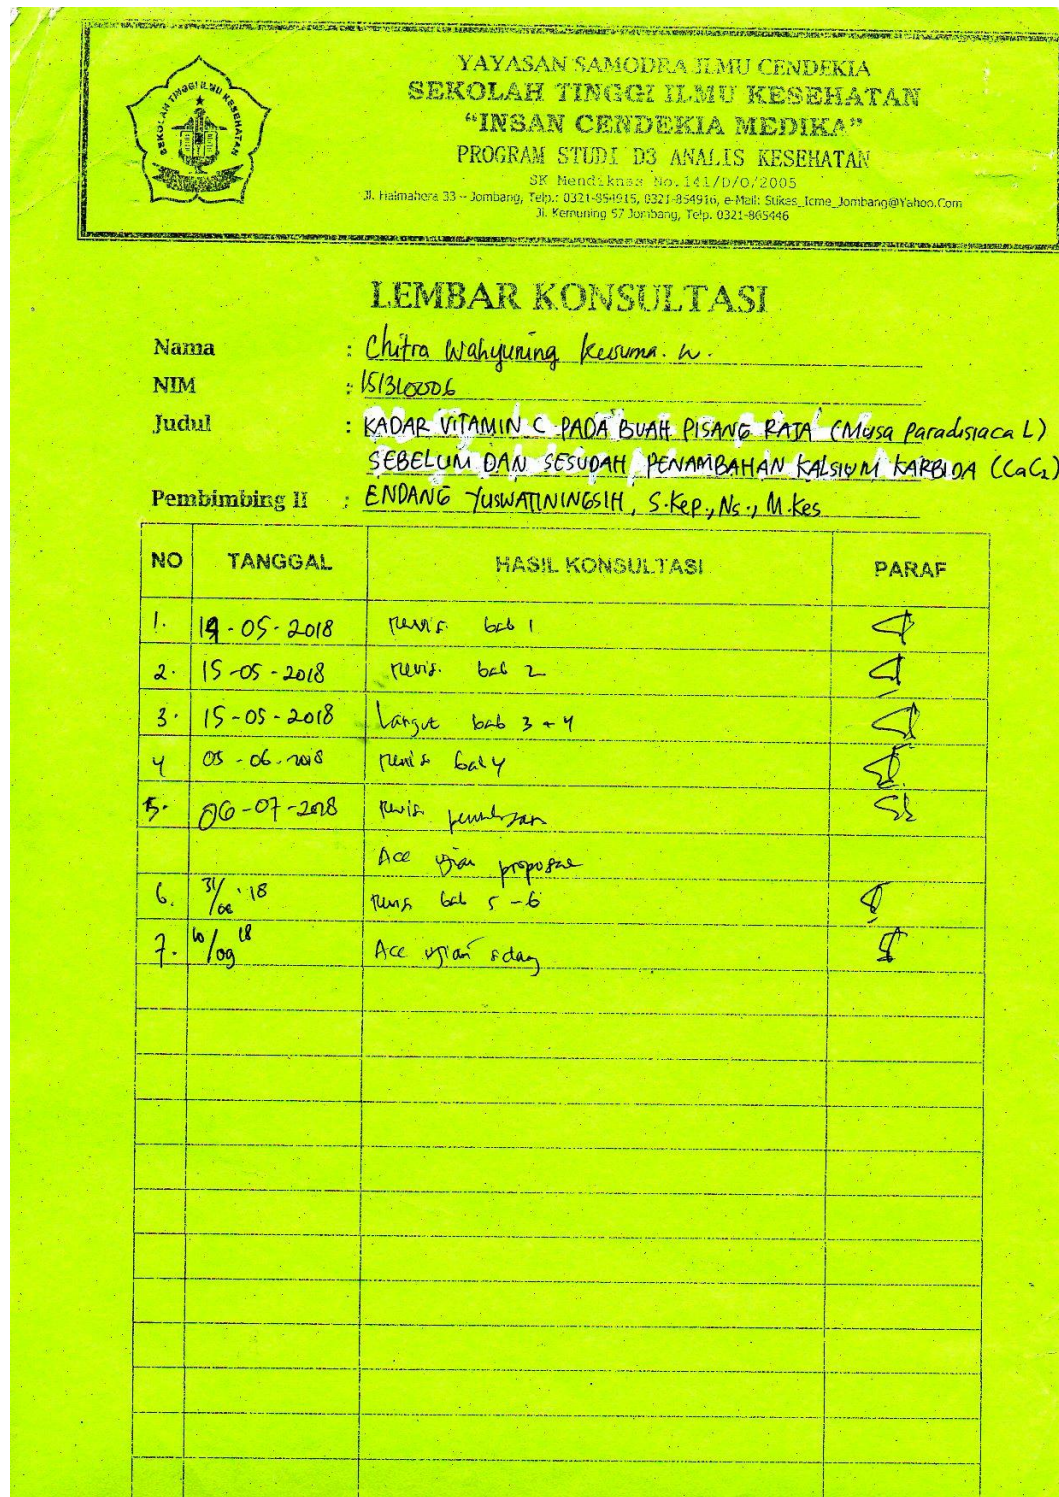 YAYASAN SAMODRA ILMU CENDEKIA
SEKOLAH TINGGI ILMU KESEHATAN
SEKOLAH TINGGI ILMU KESEHATAN
"INSAN CENDEKIA MEDIKA"
PROGRAM STUDI D3 ANALIS KESEHATAN
SK Mendiknas No.141/D/O/2005
Jl. Halmahera 33 – Jombang, Telp.: 0321-854915, 0321-854916, e-Mail: Stikes_Icme_Jombang@Yahoo.Com
Jl. Kemuning 57 Jombang, Telp. 0321-865446
LEMBAR KONSULTASI
Nama : Chitra Wahyuning Kesuma. W.
NIM : 151310006
Judul : KADAR VITAMIN C PADA BUAH PISANG RAJA (Musa Paradisiaca L)
SEBELUM DAN SESUDAH PENAMBAHAN KALSIUM KARBIDA (CaC2)
Pembimbing II : ENDANG YUSWATININGSIH, S.Kep., Ns., M.Kes
NO TANGGAL HASIL KONSULTASI PARAF
1. 14-05-2018 revisi bab 1
2. 15-05-2018 revisi bab 2
3. 15-05-2018 Lanjut bab 3 + 4
4 05-06-2018 revisi bab 4
5. 06-07-2018 revisi
Acc ujian proposal
6. 31/08 '18 revisi bab 5-6
7. 10/09 18 Acc ujian sidang